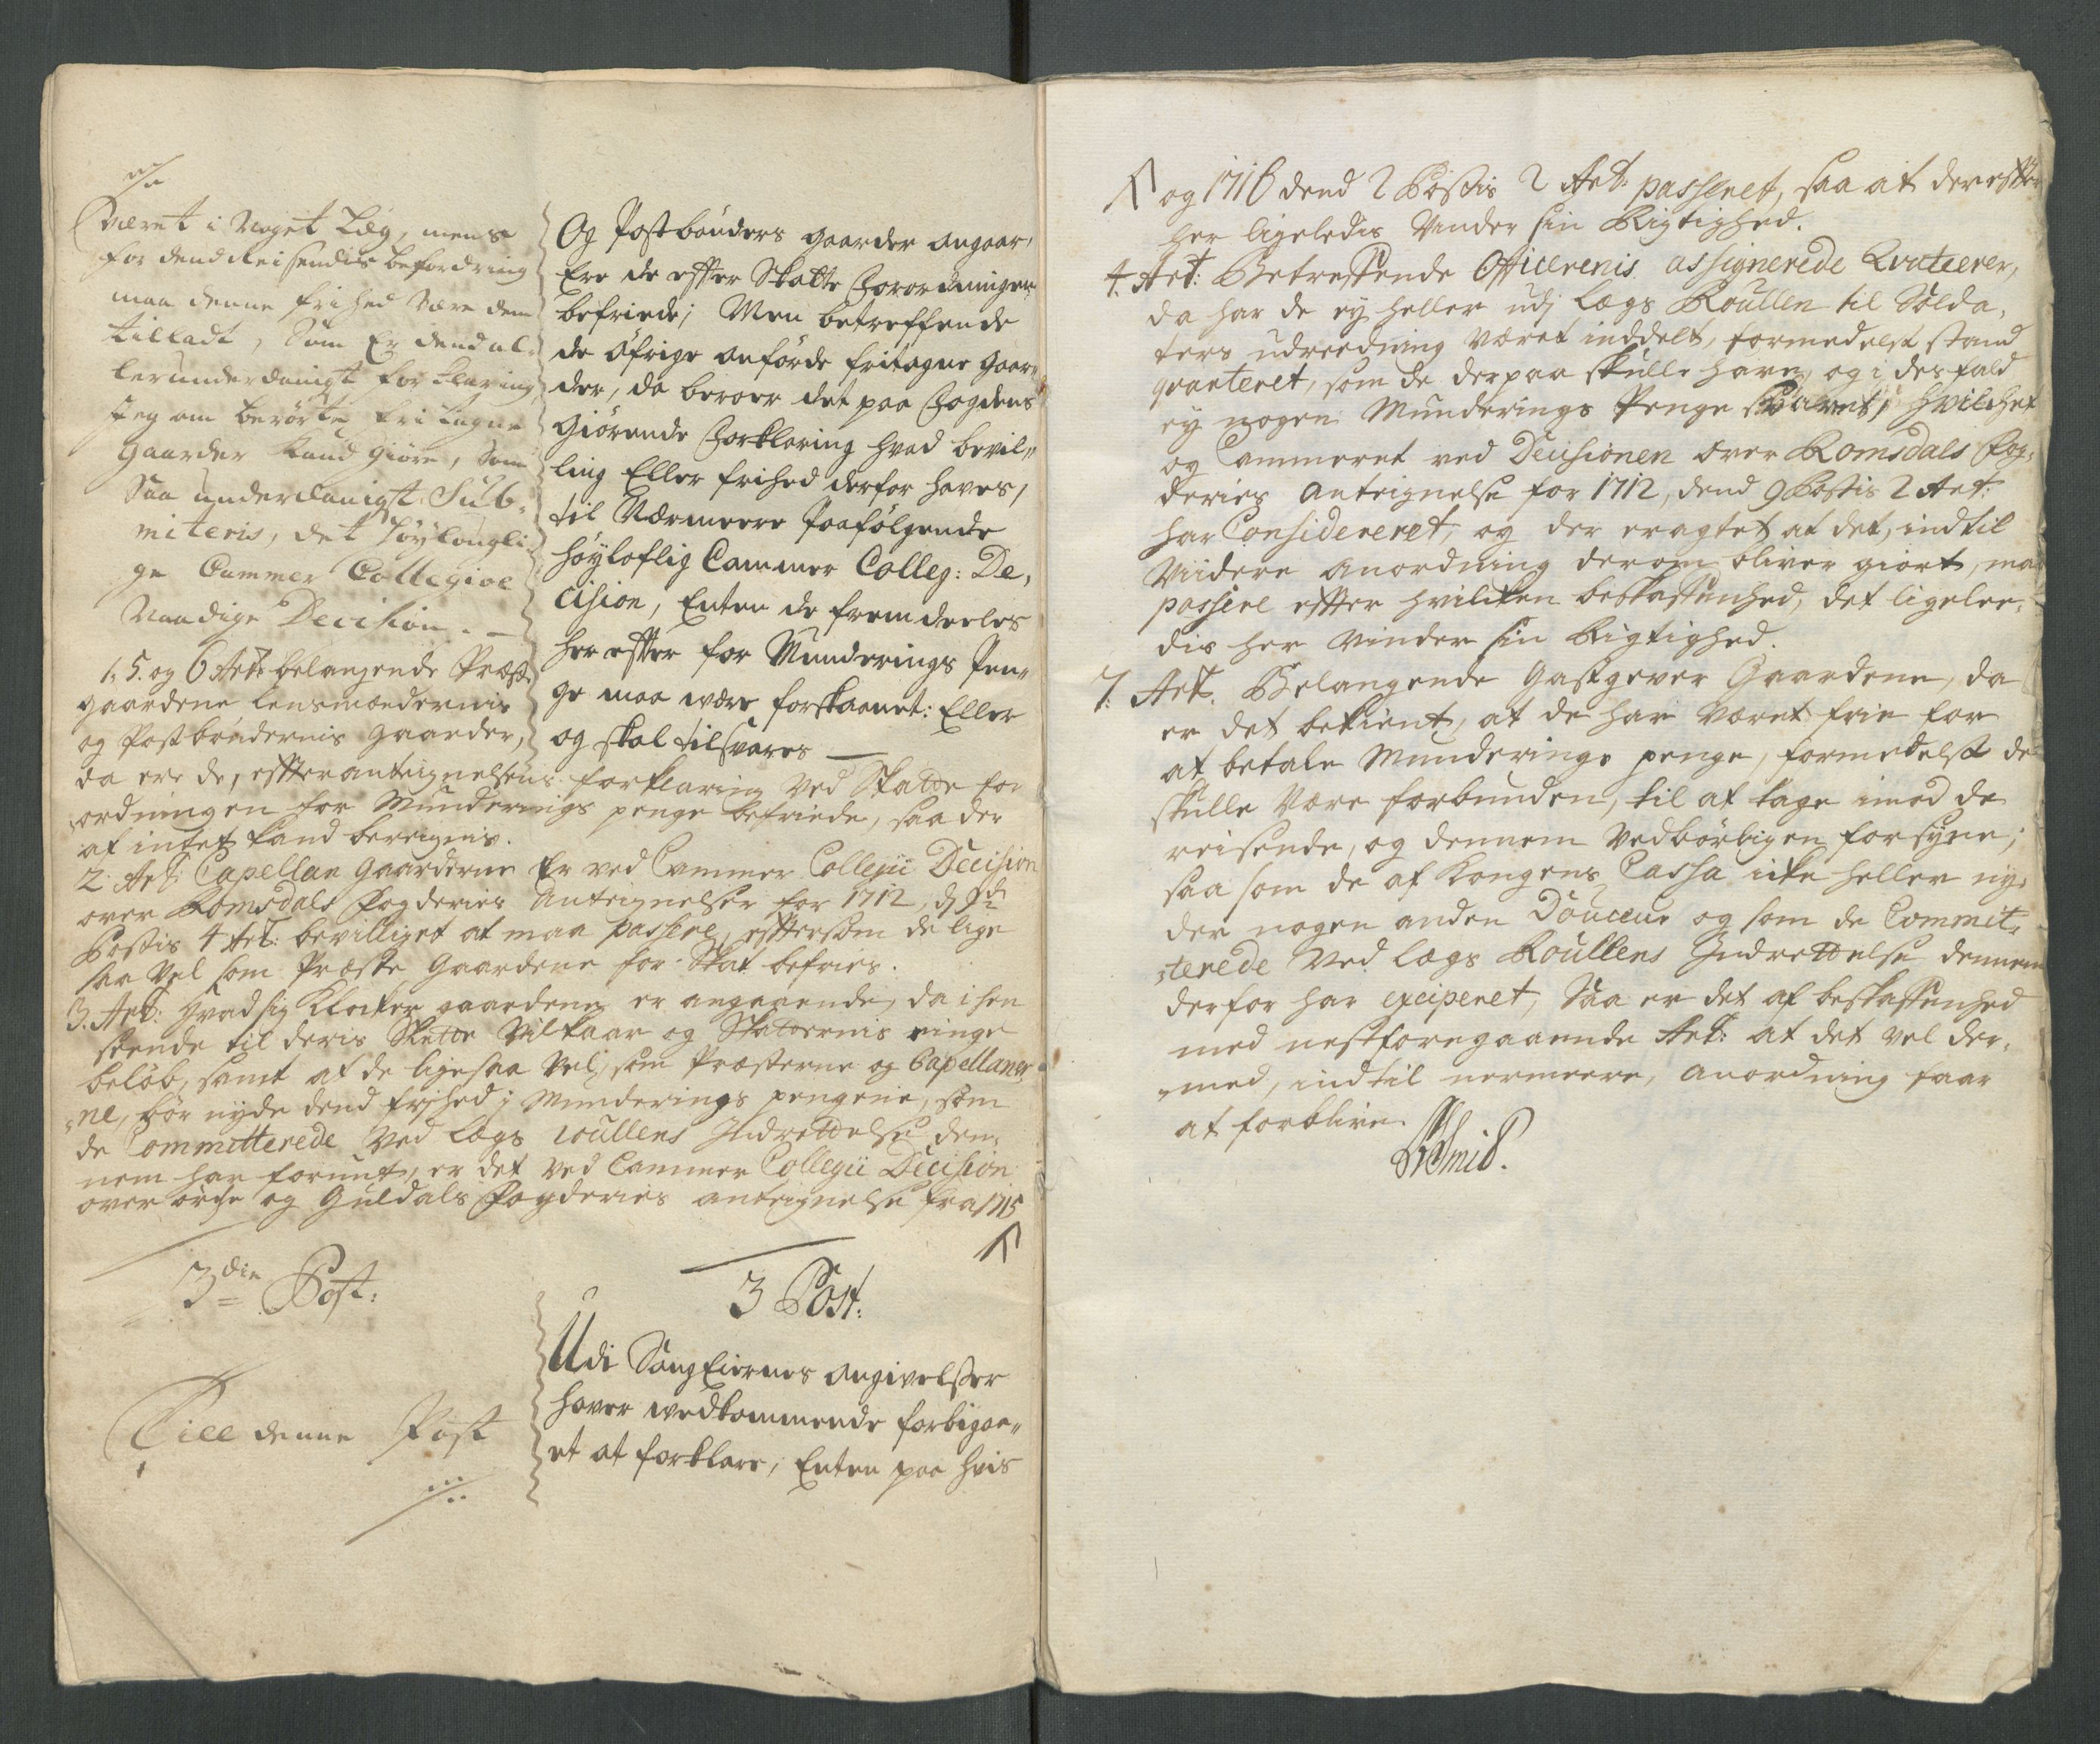 været i Noget Læg, mens
for dend Reisendis befordring
maa denne frihed være dem
tilladt, Som Er dend al-
lerunderdanigst forklaring
Jeg om berørte fri tagne
Gaarder Kand giøre, Som
Saa underdanigst Sub-
miteris, det høylovgli-
ge Cammer Collegioe
Naadige Decision. —
1. 5. og 6 Art: belangende Præste
gaardene Lensmændernis
og Postbøndernis Gaarder,
da ere de, effter anteignelsens forklaring ved Skatte for
ordningen for Munderings penge befriede, saa der
af intet kand beregnis.
2. Art: Capellan Gaarderne Er ved Cammer Collegii Decision
over Romsdals Fogderies Anteignelser for 1712, d 9de
Postis 4 Art: bevilliget at maa passere, efftersom de lige
saa vel som Præste Gaardene for Skat befries.
3. Art: Hvad sig Klocker gaardene er angaaende, da i hen
seende til deris Slette Vilkaar og Skatternis ringe
beløb, samt at de ligesaa vel, som Præsterne og Capellaner
ne, bør nyde dend frjhed j Munderings pengene, som
de Committerede ved Lægs roullens Indrettelse den-
nem har forunt, er det ved Cammer Collegii Decision
over ørche og Guldals Fogderies anteignelse fra 1715
3die Post:
Till denne Post
Og Postbønders gaarder angaar,
Ere de effter Skatte Forordningen
befriede; Men betreffende
de Øfrige anførde fritagne gaar-
der, da beroer det paa Fogdens
giørende Forklaring hvad bevil-
ling Eller frihed derfor haves,
til Nærmeere Paafølgende
høyloflig Cammer Colleg: De-
cision, Enten de fremdeeles
her effter for Munderings Pen-
ge maa være forskaanet: Eller
og skal tilsvares —
3 Post:
Udi SaugEiernes angivelsser
haver vedkommende forbigaa-
et at forklare, Enten paa hvis
og 1716 dend 2 Postis 2 Art: passeret, saa at dereffter
her ligeledis Vinder sin Rigtighed.
4. Art: Betreffende Officerenis assignerede Qvateerer,
da har de ey heller udj Lægs Roullen til Solda-
ters udreedning været inddelt, formedelst stand
qvarteret, som de derpaa skulle have, og i desfald
ey nogen Munderings Penge svaret, hvilchet
og Cammeret ved Decisionen over Romsdals Fog-
deries Anteignelse for 1712, dend 9 Postis 2 Art:
har Considereret, og der eragtet at det, indtil
Viidere Anordning derom bliver giort, maa
passere effter hvilcken beskaffenhed, det ligelee-
dis her vinder sin Rigtighed.
7. Art. Belangende Gastgever Gaardene, da
er det bekient, at de har været frie for
at betale Munderings penge, formedelst de
skulle være forbunden, til at tage imod de
reisende, og dennem vedbørligen forsyne;
saa som de af Kongens Cassa icke heller ny-
der nogen anden Douceur og som de Commit-
terede ved Lægs Roullens Indrettelse dennem
derfor har exciperet, Saa er det af beskaffenhed
med nestforegaaende Art: at det vel der-
med, indtil nermeere, Anordning faar
at forblive.